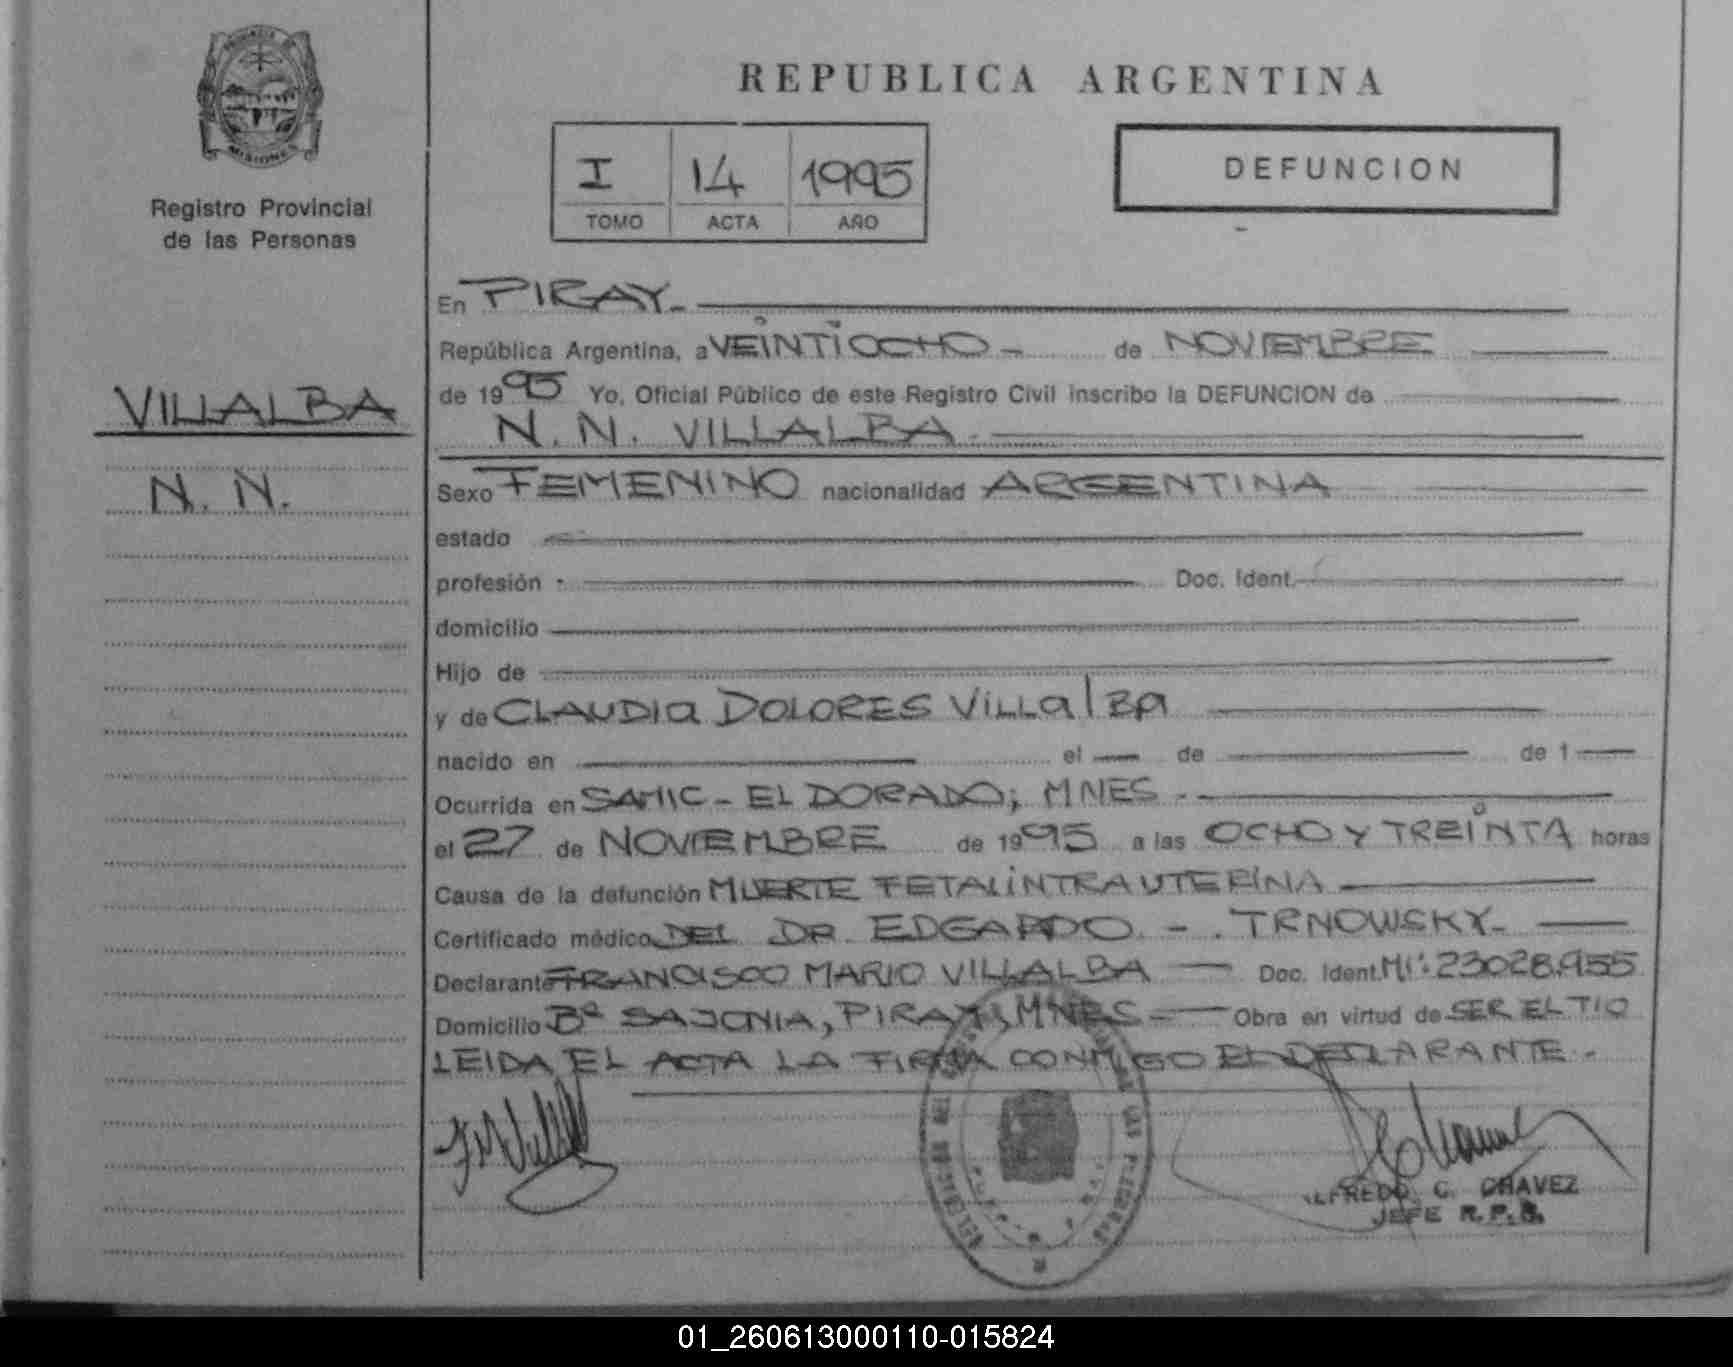 PROVINCIA DE
MISIONES
Registro Provincial
de las Personas
VILLALBA
N. N.
REPUBLICA ARGENTINA
I 14 1995
TOMO ACTA AÑO
DEFUNCION
En PIRAY.
República Argentina, a VEINTIOCHO - de NOVIEMBRE
de 1995 Yo, Oficial Público de este Registro Civil inscribo la DEFUNCION de
N. N. VILLALBA.
Sexo FEMENINO nacionalidad ARGENTINA
estado
profesión Doc. Ident.
domicilio
Hijo de
y de CLAUDIA DOLORES VILLALBA
nacido en el de de 1
Ocurrida en SAMIC - EL DORADO; MNES.
el 27 de NOVIEMBRE de 1995 a las OCHO Y TREINTA horas
Causa de la defunción MUERTE FETAL INTRAUTERINA
Certificado médico DEL DR. EDGARDO - . TRNOWSKY.
Declarante FRANCISCO MARIO VILLALBA Doc. Ident. MI: 23028.955
Domicilio Bº SAJONIA, PIRAY, MNES Obra en virtud de SER EL TIO
LEIDA EL ACTA LA FIRMA CONMIGO EL DECLARANTE.
ALFREDO C. CHAVEZ
JEFE R.P.P.
01_260613000110-015824